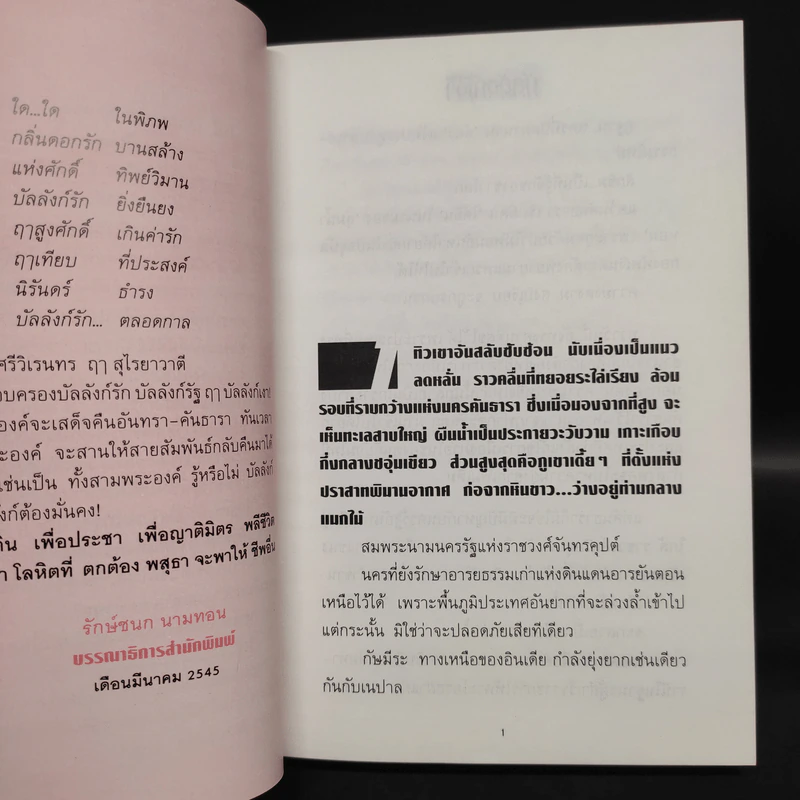 ใด...ใด ในพิภพ
กลิ่นดอกรัก บานสล้าง
แห่งศักดิ์ ทิพย์วิมาน
บัลลังก์รัก ยิ่งยืนยง
ฤๅสูงศักดิ์ เกินค่ารัก
ฤๅเทียบ ที่ประสงค์
นิรันดร์ ธำรง
บัลลังก์รัก... ตลอดกาล
ศรีวิเรนทร ฤๅ สุไรยาวาตี
อบครองบัลลังก์รัก บัลลังก์รัฐ ฤๅ บัลลังก์
องค์จะเสด็จคืนอันทรา-คันธารา ทันเวลา
ะองค์ จะสานให้สายสัมพันธ์กลับคืนมาได้
เช่นเป็น ทั้งสามพระองค์ รู้หรือไม่ บัลลังก์
งก์ต้องมั่นคง!
เพื่อประชา เพื่อญาติมิตร พลีชีวิต
โลหิตที่ ตกต้อง พสุธา จะพาให้ ชีพอื่น
รักษ์ชนก นามทอน
บรรณาธิการสำนักพิมพ์
เดือนมีนาคม 2545
1
ทิวเขาอันสลับซับซ้อน นับเนื่องเป็นแนว
ลดหลั่น ราวคลื่นที่ทยอยระไล่เรียง ล้อม
รอบที่ราบกว้างแห่งนครคันธารา ซึ่งเมื่อมองจากที่สูง จะ
เห็นทะเลสาบใหญ่ ผืนน้ำเป็นประกายวะวับวาม เกาะเกือบ
กึ่งกลางชอุ่มเขียว ส่วนสูงสุดคือภูเขาเตี้ยๆ ที่ตั้งแห่ง
ปราสาทพิมานอากาศ ก่อจากหินขาว...ว่างอยู่ท่ามกลาง
แมกไม้
สมพระนามนครรัฐแห่งราชวงศ์จันทรคุปต์
นครที่ยังรักษาอารยธรรมเก่าแห่งดินแดนอารยันตอน
เหนือไว้ได้ เพราะพื้นภูมิประเทศอันยากที่จะล่วงล้ำเข้าไป
แต่กระนั้น มิใช่ว่าจะปลอดภัยเสียทีเดียว
กัษมีระ ทางเหนือของอินเดีย กำลังยุ่งยากเช่นเดียว
กันกับเนปาล
1